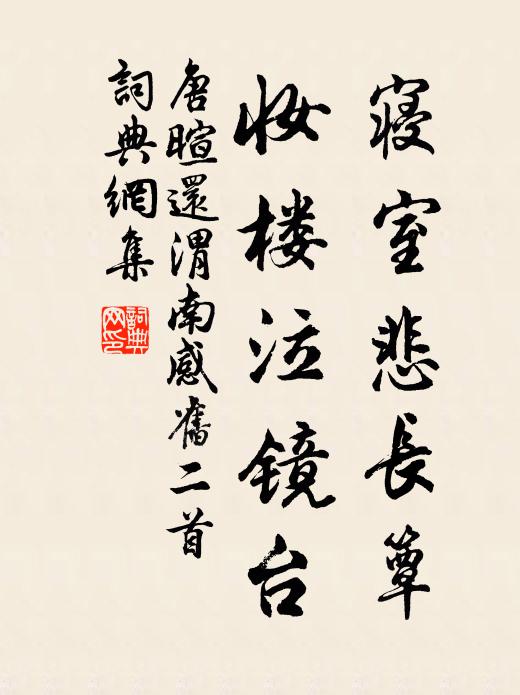 寝室悲長簟
妆楼泣镜台
唐暄還渭南感舊二首
詞典網集
詞典网印